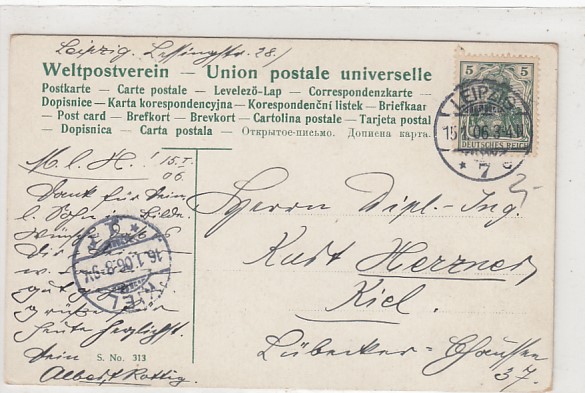 Leipzig. Lessingstr. 28.
Weltpostverein — Union postale universelle
Postkarte — Carte postale — Levelező-Lap — Correspondenzkarte —
Dopisnice — Karta korespondencyjna — Korespondenční listek — Briefkaar
— Post card — Brefkort — Brevkort — Cartolina postale — Tarjeta postal
— Dopisnica — Carta postala — Открытое-письмо. Дописна карта.
5 5
LEIPZIG
15.1.06.3-4N
DEUTSCHES REICH
* 7
M. l. H.! 15.I.
06.
Dank für Dein
l.
Die
w.
gut
grüße Dir
heute herzlichst.
Dein
Albert Rottig.
KIEL
16.1.06.8-9V
Herrn Dipl.-Ing.
Kurt Herzner,
Kiel.
Lübecker-Chaussee
37.
S. No. 313